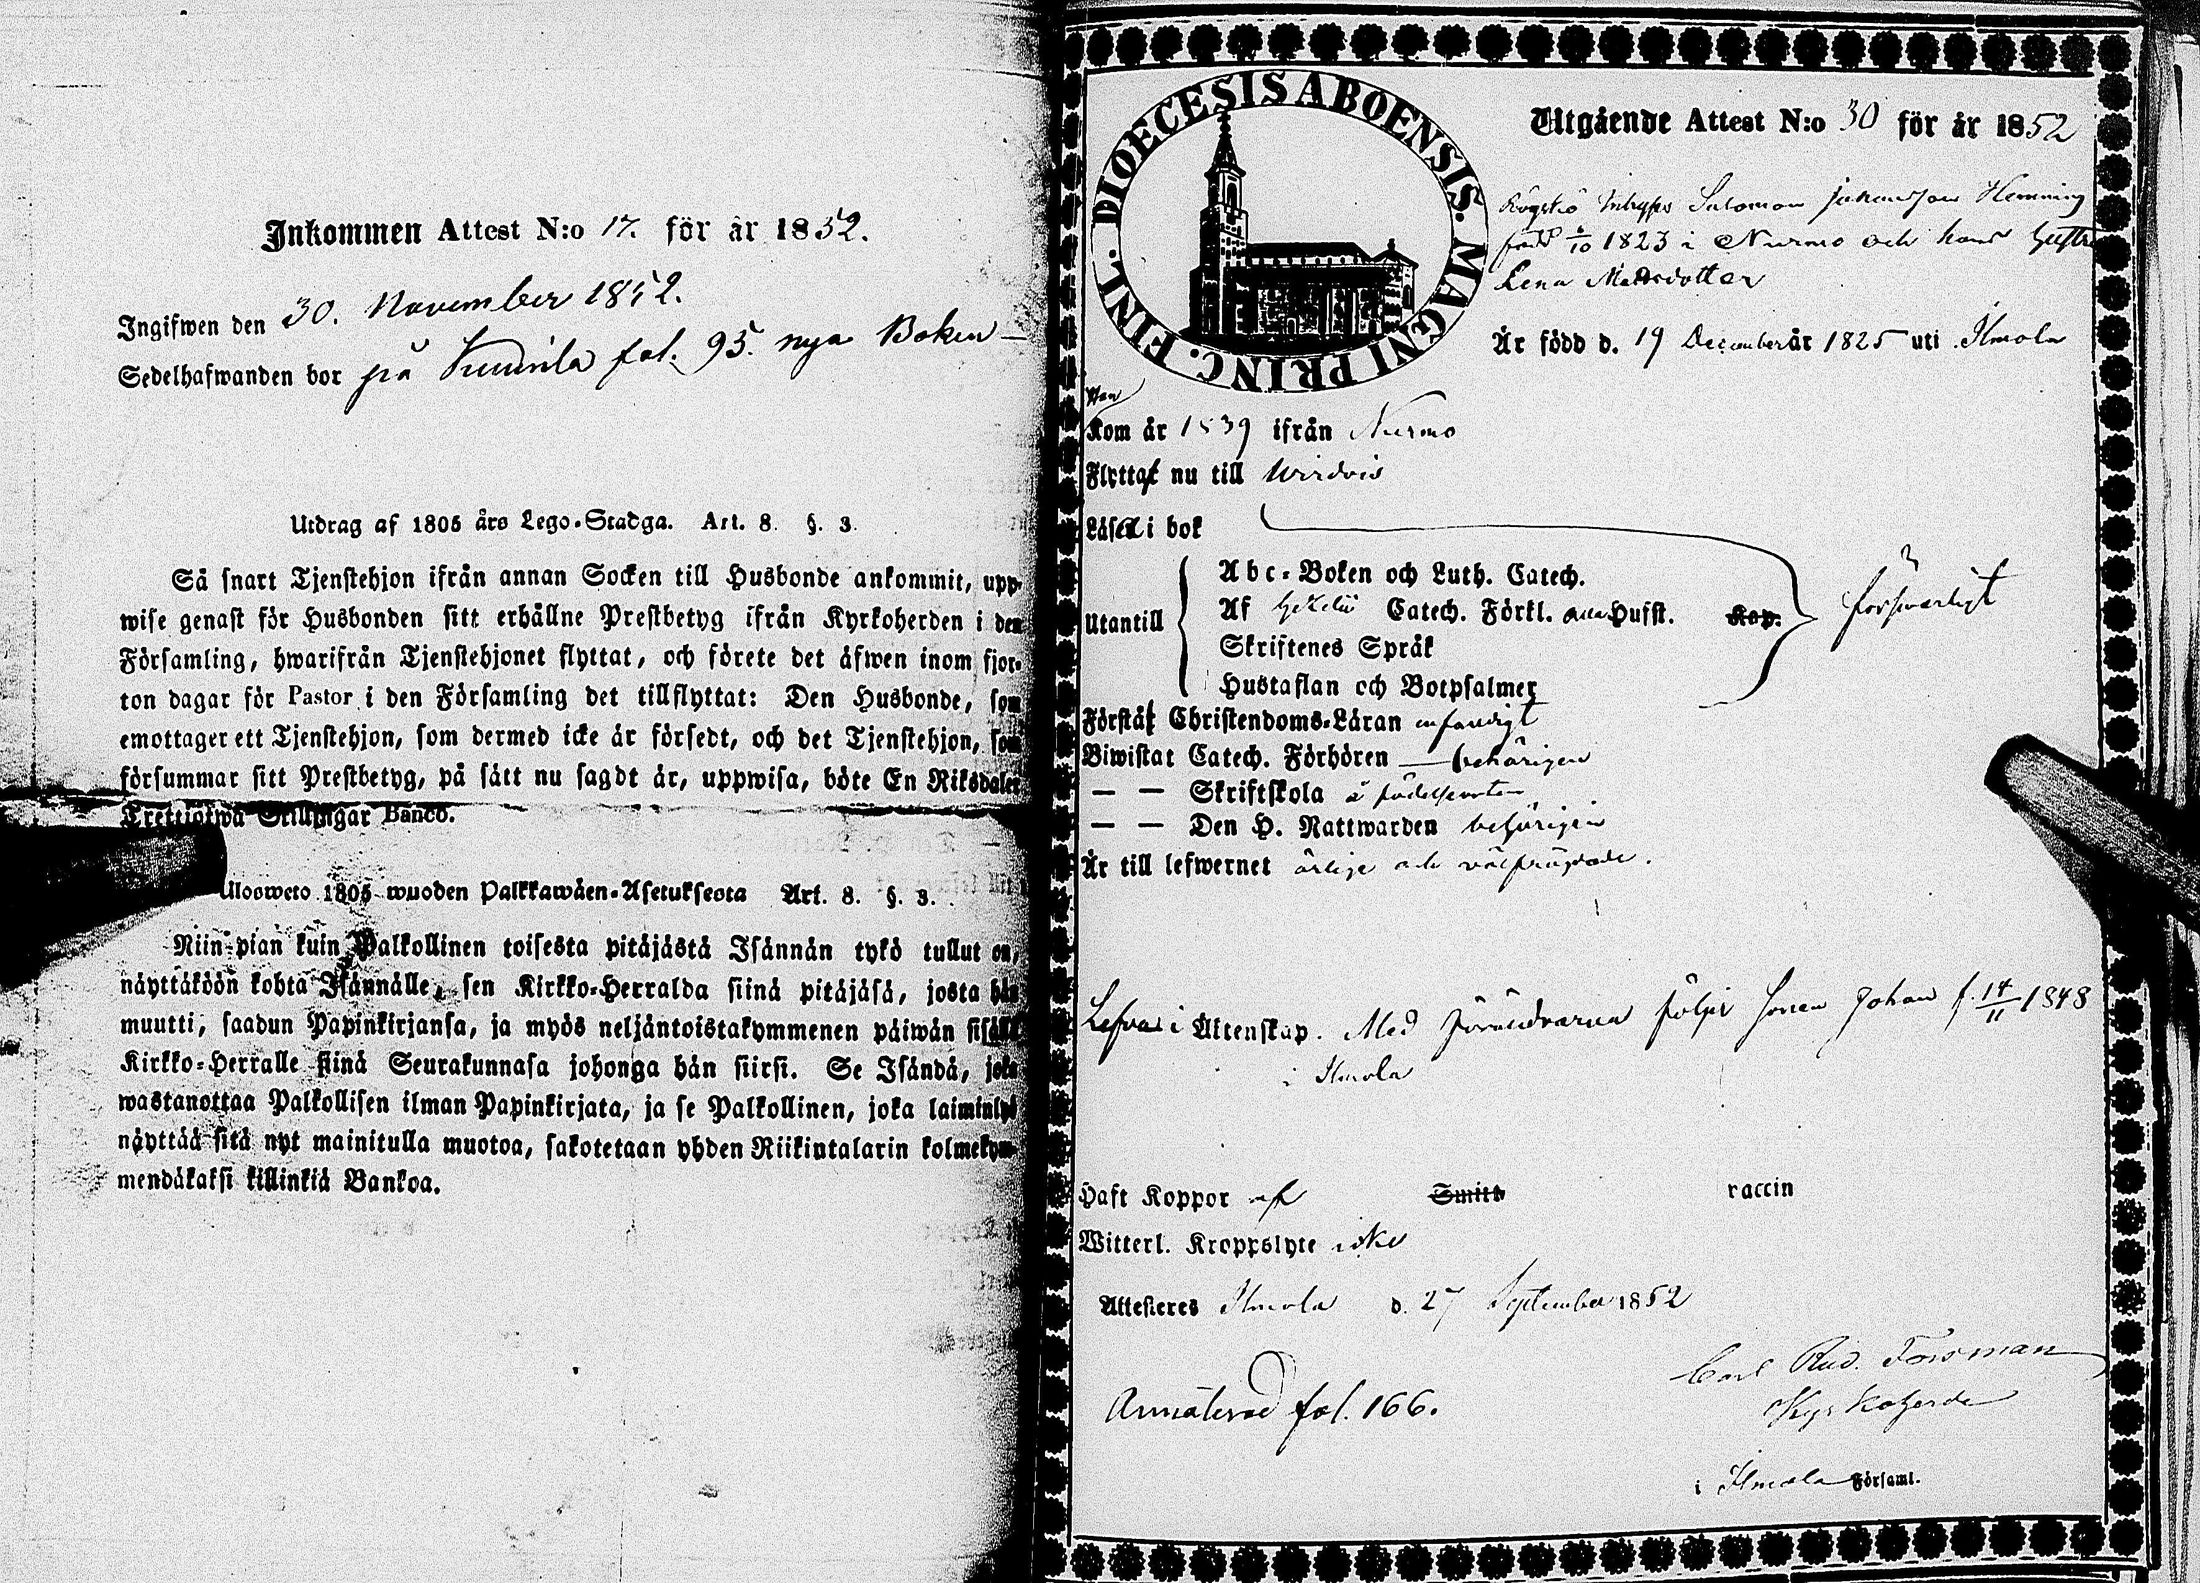 Inkommen Attest N:o 17. för år 1852.
Ingifwen den 30. November 1852.
Sedelhafwanden bor på fol. 95. nya Boken
Utdrag af 1805 års Lego-Stadga. Art. 8. §. 3.
Så snart Tjenstehjon ifrån annan Socken till Husbonde ankommit, upp-
wise genast för Husbonden sitt erhållne Prestbetyg ifrån Kyrkoherden i den
Församling, hwarifrån Tjenstehjonet flyttat, och förete det äfwen inom fjor-
ton dagar för Pastor i den Församling det tillflyttat: Den Husbonde, som
emottager ett Tjenstehjon, som dermed icke är försedt, och det Tjenstehjon, som
försummar sitt Prestbetyg, på sätt nu sagdt är, uppwisa, böte En Riksdaler
Trettiotwå Skillingar Banco.
Ulosweto 1805 wuoden Palkkawäen-Asetuksesta Art. 8. §. 3.
Niin pian kuin Palkollinen toisesta pitäjästä Isännän tykö tullut on,
näyttäköön kohta Isännälle, sen Kirkko-Herralda siinä pitäjäsä, josta hän
muutti, saadun Papinkirjansa, ja myös neljäntoistakymmenen päiwän sisällä
Kirkko-Herralle siinä Seurakunnasa johonga hän siirsi. Se Isändä, joka
wastanottaa Palkollisen ilman Papinkirjata, ja se Palkollinen, joka laiminlyö
näyttää sitä nyt mainitulla muotoa, sakotetaan yhden Riikintalarin kolmekym-
mendäkaksi killinkiä Bankoa.
DIOECESIS ABOENSIS. MAGNI PRINC. FINL.
Utgående Attest N:o 30 för år 1852
Salomon Johansson Hemming
född 1823 i Nurmo och hans hustru
Lena Mattsdotter
Är född d. 19 December år 1825 uti Ilmola
Han
Kom år 1839 ifrån Nurmo
Flyttat nu till Wirdois
Läsa i bok
Utantill
Abc-Boken och Luth. Catech.
Af Catech. Förkl. Husst. Kap.
Skriftenes Språk
Hustaflan och Botpsalmer
försvarligt
Förstår Christendoms-Läran enfaldigt
Biwistat Catech. Förhören — behörigen
— — Skriftskola å födelseorten
— — Den H. Nattwarden behörigen
Är till lefwernet ärlige och välfrägdade.
Lefva i Äktenskap. Med föräldrarna följer sonen Johan f. 14/11 1848
i Ilmola
Haft Koppor af Smitt vaccin
Witterl. Kroppslyte icke
Attesteres Ilmola d. 27 September 1852
Carl Rud. Forsman
Kyrkoherde
Annoterad fol. 166.
i Ilmola Församl.